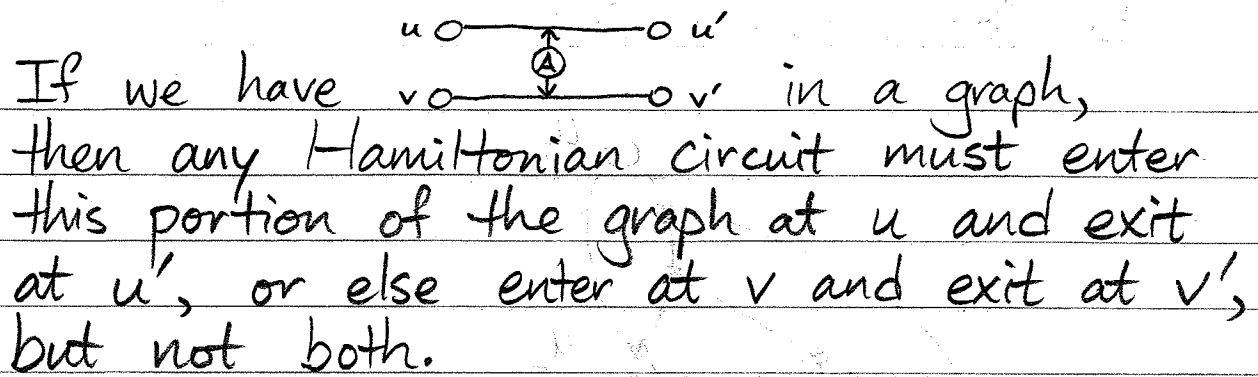 u u′
A
If we have v v′ in a graph,
then any Hamiltonian circuit must enter
this portion of the graph at u and exit
at u′, or else enter at v and exit at v′,
but not both.